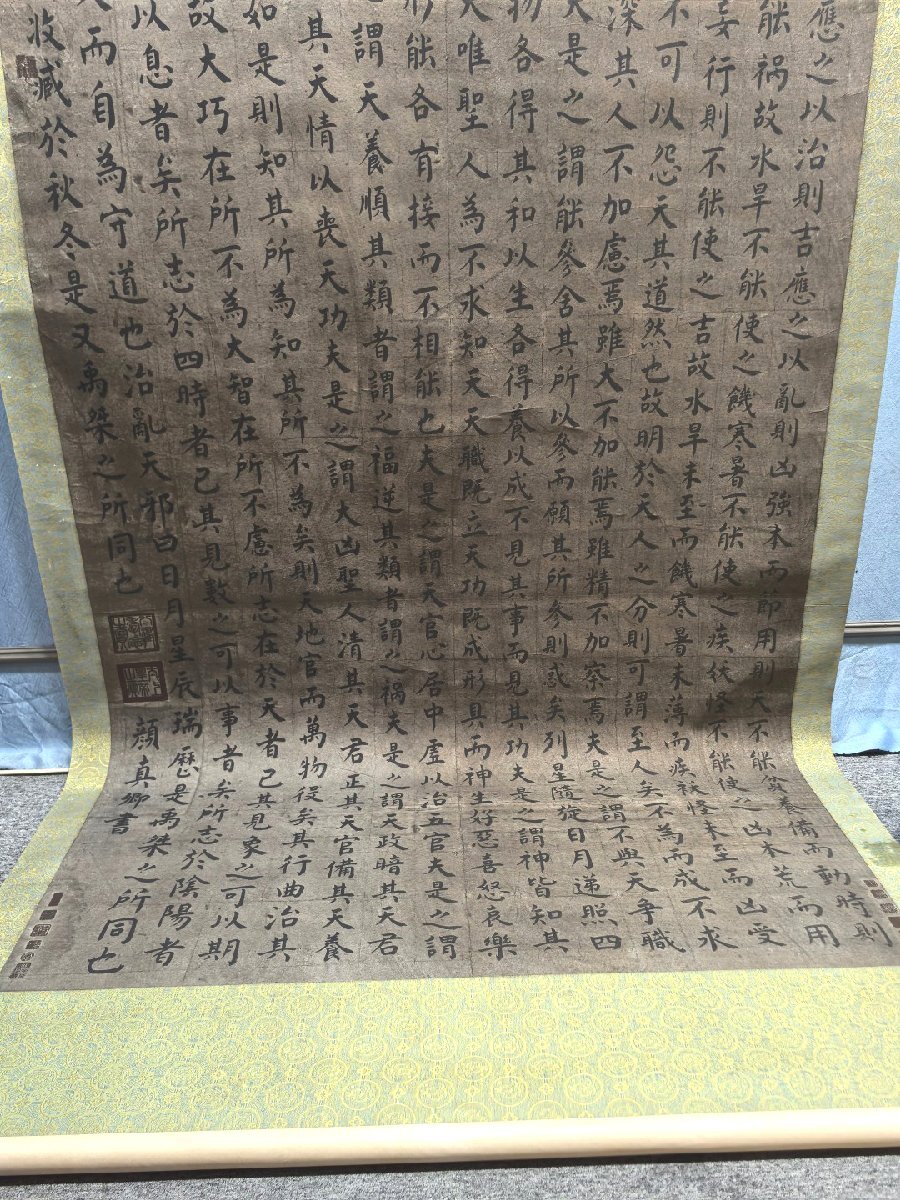 應之以治則吉應之以亂則凶強本而節用則天不能貧養備而動時則
能祸故水旱不能使之饑寒暑不能使之疾妖怪不能使之凶本荒而用
妄行則不能使之吉故水旱未至而饑寒暑未薄而疾祅怪未至而凶受
不可以怨天其道然也故明於天人之分則可謂至人矣不為而成不求
深其人不加慮焉雖大不加能焉雖精不加察焉夫是之謂不與天爭職
夫是之謂能參舍其所以參而願其所参則惑矣列星隨旋日月递照四
物各得其和以生各得養以成不見其事而見其功夫是之謂神皆知其
天唯聖人為不求知天天職既立天功既成形具而神生好惡喜怒哀樂
形能各有接而不相能也夫是之謂天官心居中虛以治五官夫是之謂
謂天養順其類者謂之福逆其類者謂之禍夫是之謂天政暗其天君
其天情以喪天功夫是之謂大凶聖人清其天君正其天官備其天養
如是則知其所為知其所不為矣則天地官而萬物役矣其行曲治其
故大巧在所不為大智在所不慮所志在於天者已其見象之可以期
以息者矣所志於四時者已其見數之可以事者矣所志於陰陽者
而自為守道也治亂天邪曰日月星辰瑞厤是禹桀之所同也
收藏於秋冬是又禹桀之所同也
顏真卿書